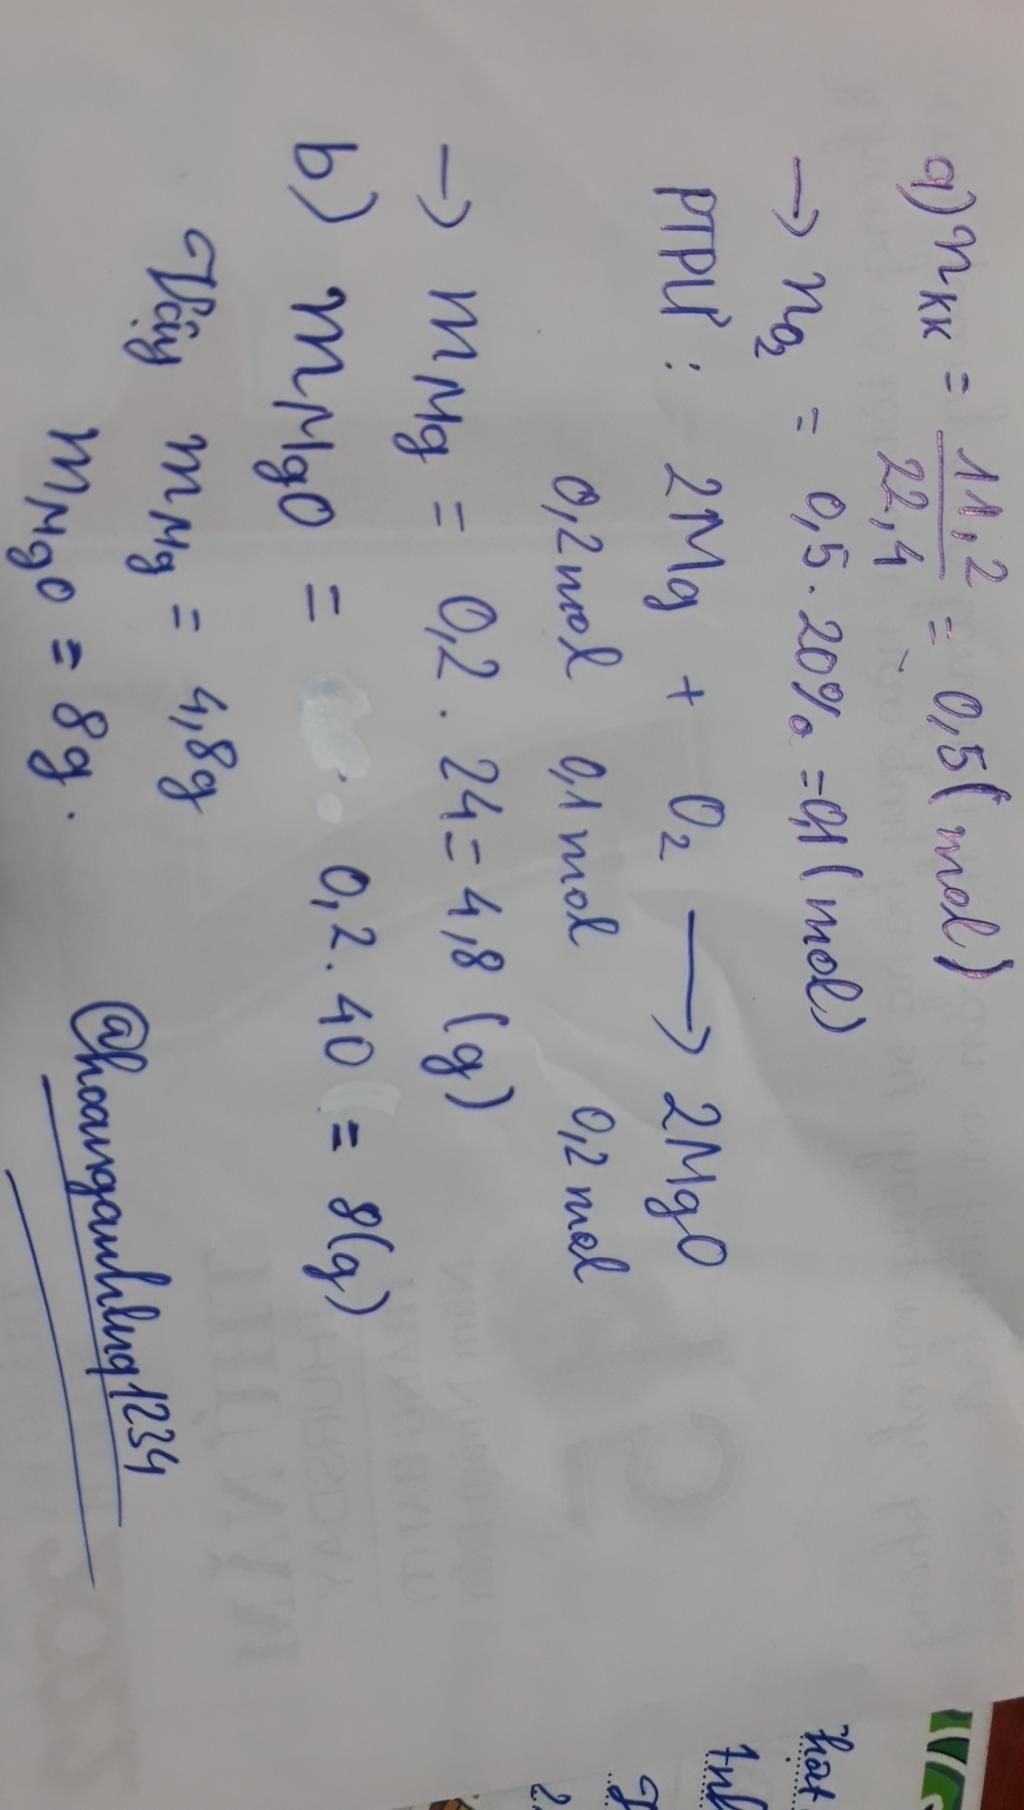 a) nKK = 11,2/22,4 = 0,5 (mol)
→ nO2 = 0,5 . 20% = 0,1 (mol)
PTPƯ : 2Mg + O2 → 2MgO
0,2mol 0,1mol 0,2mol
→ mMg = 0,2 . 24 = 4,8 (g)
b) mMgO = 0,2 . 40 = 8(g)
Vậy mMg = 4,8g
mMgO = 8g.
@hoanganhlnq1234
hát